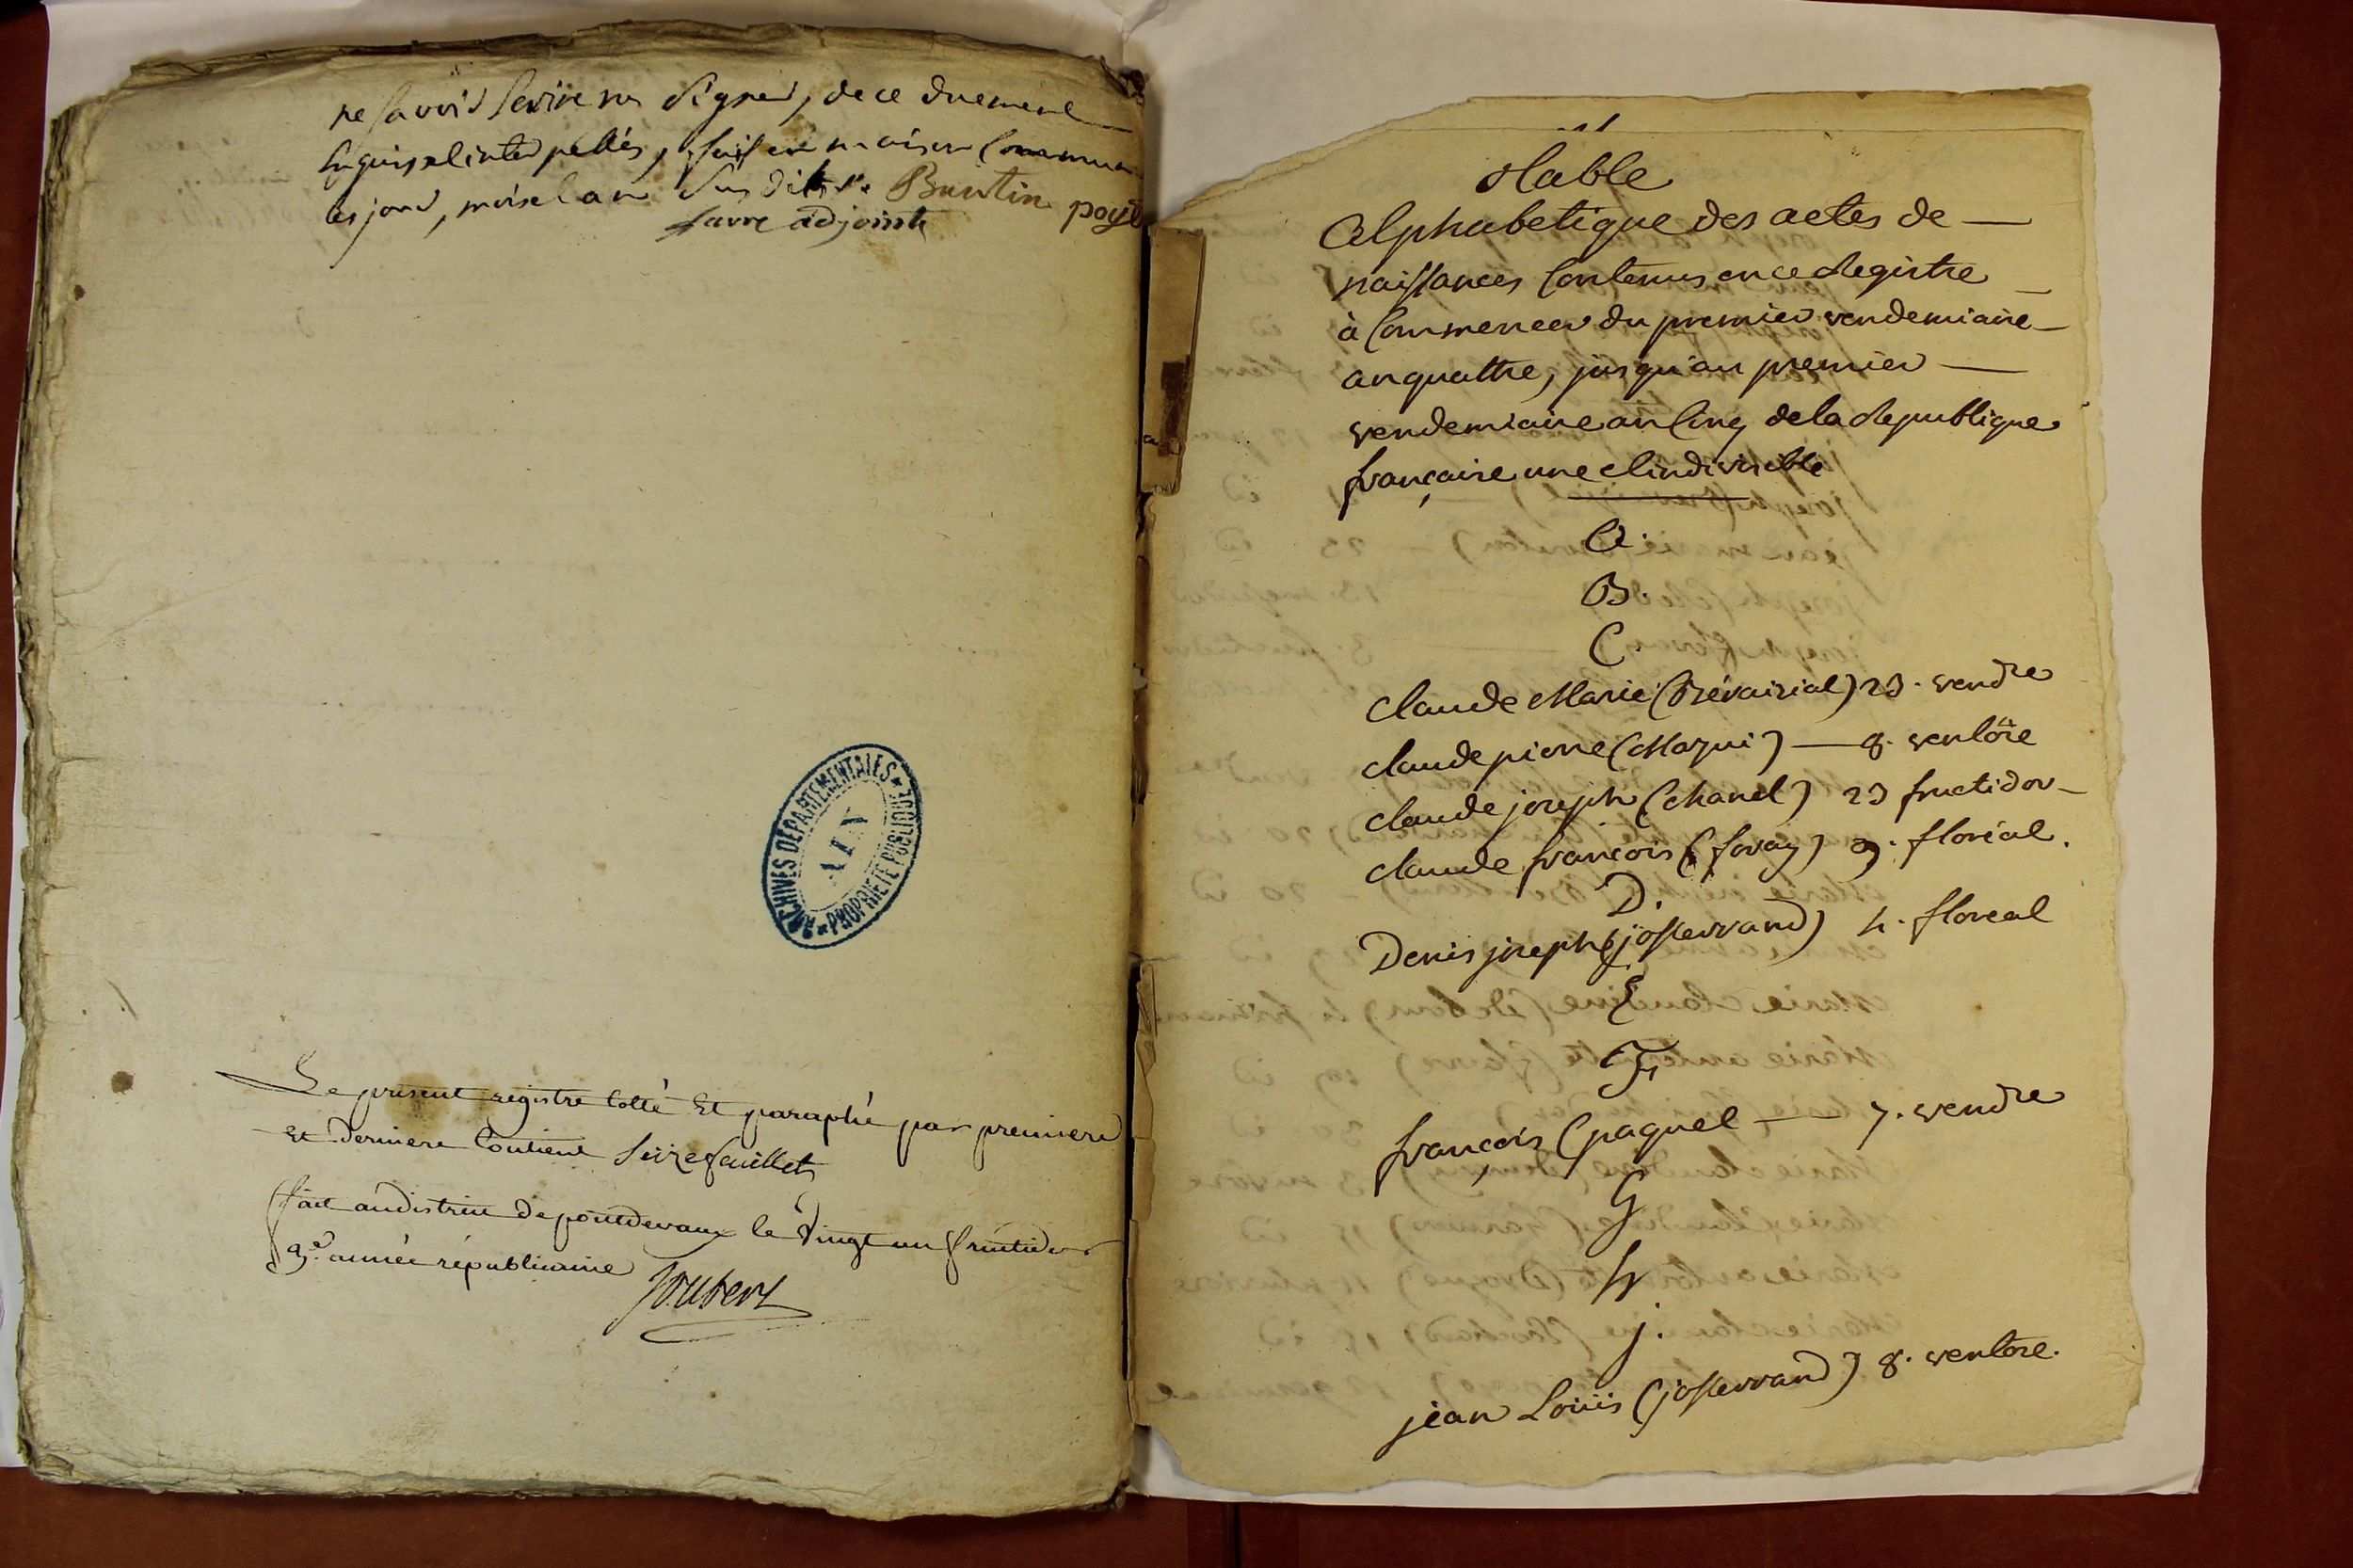 ne savoir Écrire ni Signer, de ce duement
Enquis et interpellés, fait en maison Commune
les jour, mois et an Sus dits. Buntin payet
favre adjoint
ARCHIVES DÉPARTEMENTALES
AIN
PROPRIÉTÉ PUBLIQUE
Le présent registre cotté Et paraphé par premiere
et derniere Contient Seize feuillets
fait au district de pontdevaux le vingt un fructidor
3e. année républicaine
Joubert
Table
Alphabetique des actes de
naissances Contenus en ce Registre
à Commencer du premier vendemiaire
an quattre, jusqu'au premier
vendemiaire an Cinq de la Republique
française une et indivisible
A.
B.
C
Claude Marie (Prévairial) 23. vendre
claude pierre (Mazui) 8. ventôse
claude joseph (chanel) 23 fructidor
claude françois (foray) 9. floréal.
D.
Denis joseph (josserrand) 4. floreal
E
F
françois (paquel 7. vendre
G
H
j.
jean Louis (josserrand) 8. ventose.